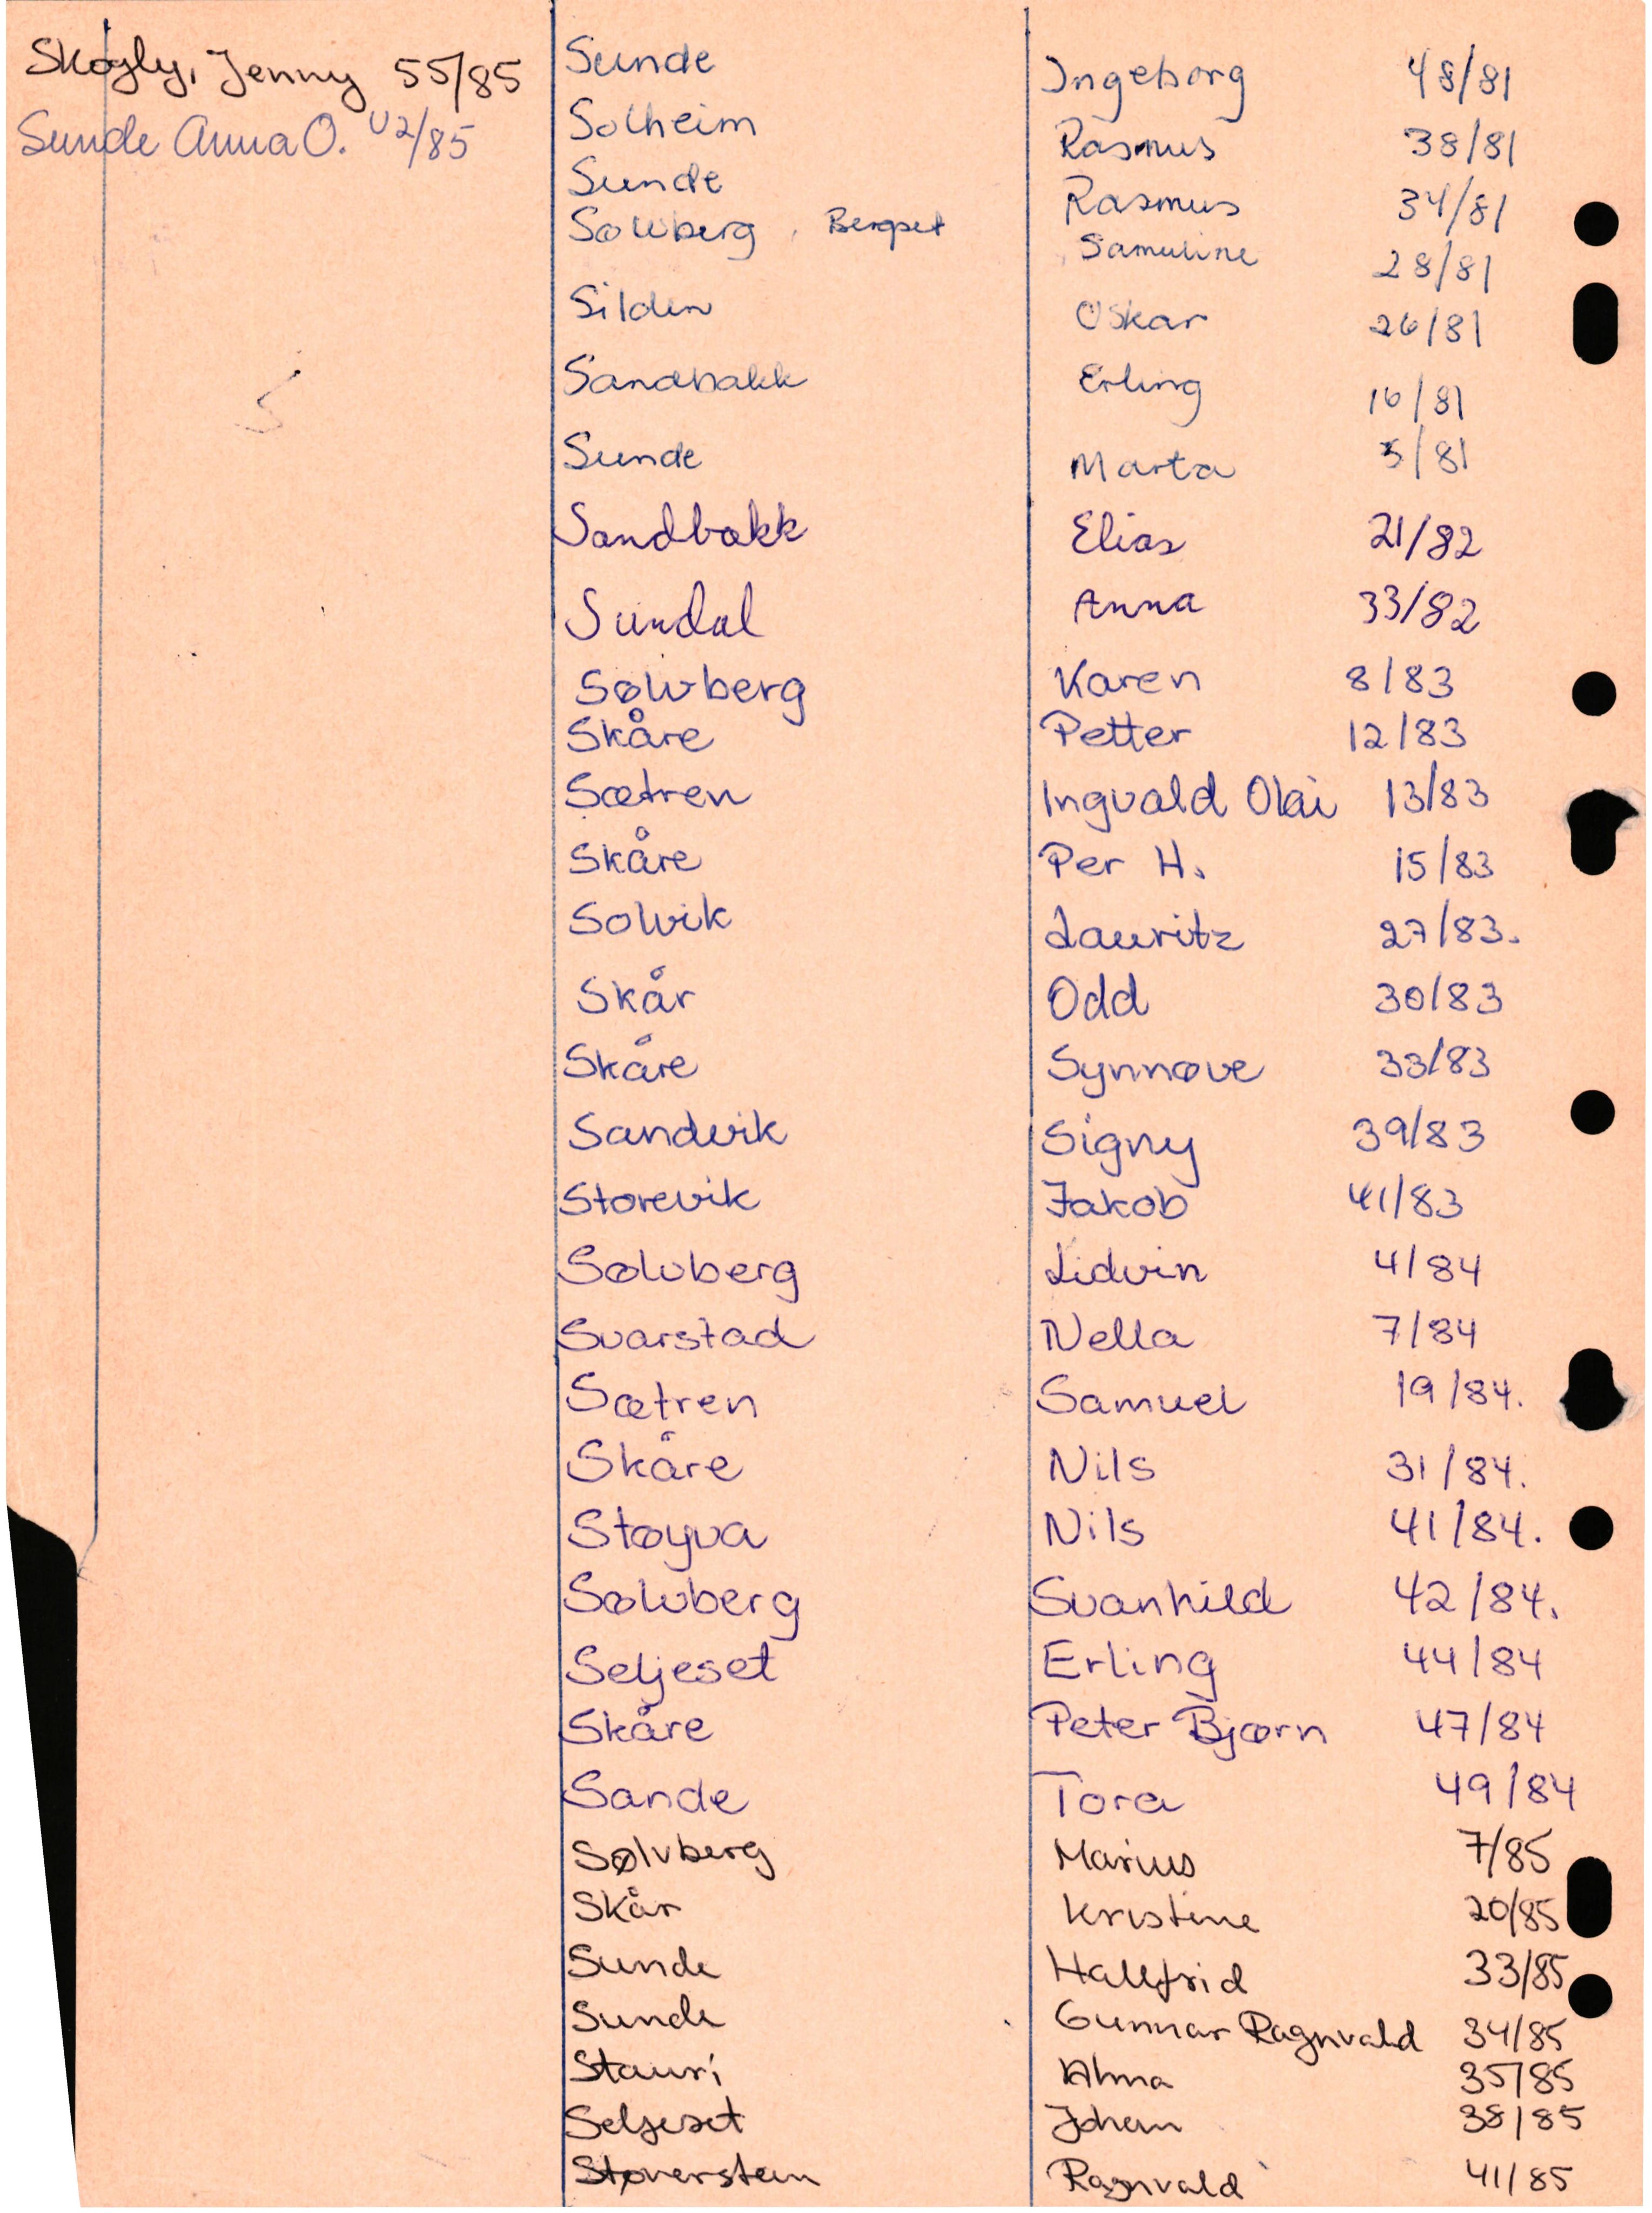 Skogly, Jenny 55/85
Sunde Anna O. U2/85
Sunde Ingeborg 48/81
Solheim Rasmus 38/81
Sunde Rasmus 34/81
Sølvberg, Bergset Samuline 28/81
Silden Oskar 26/81
Sandbakk Erling 16/81
Sunde Marta 5/81
Sandbakk Elias 21/82
Sundal Anna 33/82
Sølvberg Karen 8/83
Skåre Petter 12/83
Sætren Ingvald Olai 13/83
Skåre Per H. 15/83
Solvik Lauritz 27/83.
Skår Odd 30/83
Skåre Synnøve 33/83
Sandvik Signy 39/83
Storevik Jakob 41/83
Sølvberg Lidvin 4/84
Svarstad Nella 7/84
Sætren Samuel 19/84.
Skåre Nils 31/84.
Støyva Nils 41/84.
Sølvberg Svanhild 42/84.
Seljeset Erling 44/84
Skåre Peter Bjørn 47/84
Sande Tora 49/84
Sølvberg Marius 7/85
Skår Kristine 20/85
Sunde Hallfrid 33/85
Sunde Gunnar Ragnvald 34/85
Stauri Alma 35/85
Seljeset Johan 38/85
Støverstein Ragnvald 41/85
S